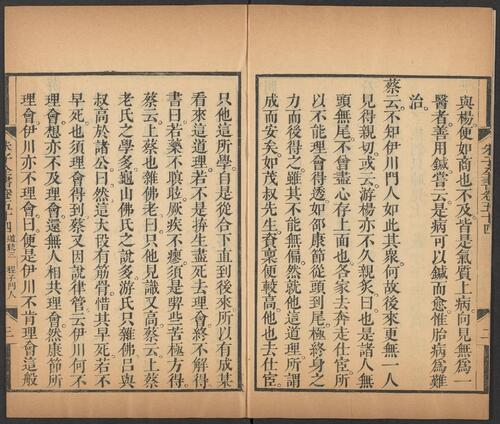 與楊便如商也不及皆是氣質上病向見無爲一
醫者善用鍼嘗云是病可以鍼而愈惟胎病爲難
治
蔡云不知伊川門人如此其衆何故後來更無一人
見得親切或云游楊亦不久親炙曰也是諸人無
頭無尾不曾盡心存上面也各家去奔走仕宦所
以不能理會得透如邵康節從頭到尾極終身之
力而後得之雖其不能無偏然就他這道理所謂
成而安矣如茂叔先生資稟便較高他也去仕宦
只他這所學自是從合下直到後來所以有成某
看來這道理若不是拚生盡死去理會終不解得
書曰若藥不瞑眩厥疾不瘳須是喫些苦極方得
蔡云上蔡也雜佛老曰只他見識又高蔡云上蔡
老氏之學多龜山佛氏之說多游氏只雜佛呂與
叔高於諸公曰然這大段有筋骨惜其早死若不
早死也須理會得到蔡又因說律管云伊川何不
理會想亦不及理會還無人相共理會然康節所
理會伊川亦不理會曰便是伊川不肯理會這般
四 道統三 程子門人
三